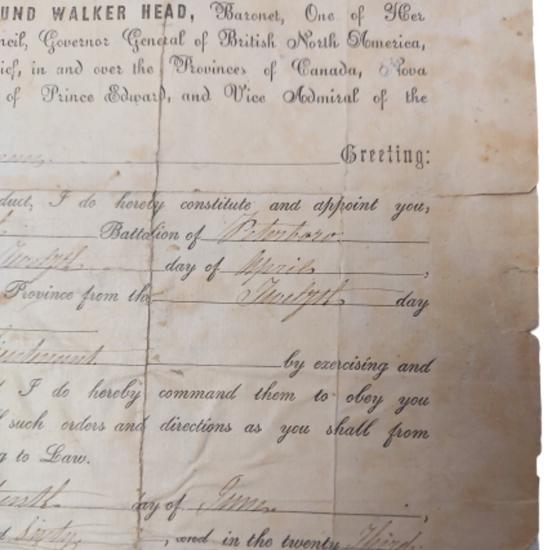 UND WALKER HEAD, Baronet, One of Her
ncil, Governor General of British North America,
ief, in and over the Provinces of Canada, Nova
of Prince Edward, and Vice Admiral of the
Greeting:
duct, I do hereby constitute and appoint you,
Battalion of Peterboro
Twelfth day of April,
Province from the Twelfth day
by exercising and
I do hereby command them to obey you
such orders and directions as you shall from
g to Law.
day of June,
d Sixty, and in the twenty Third